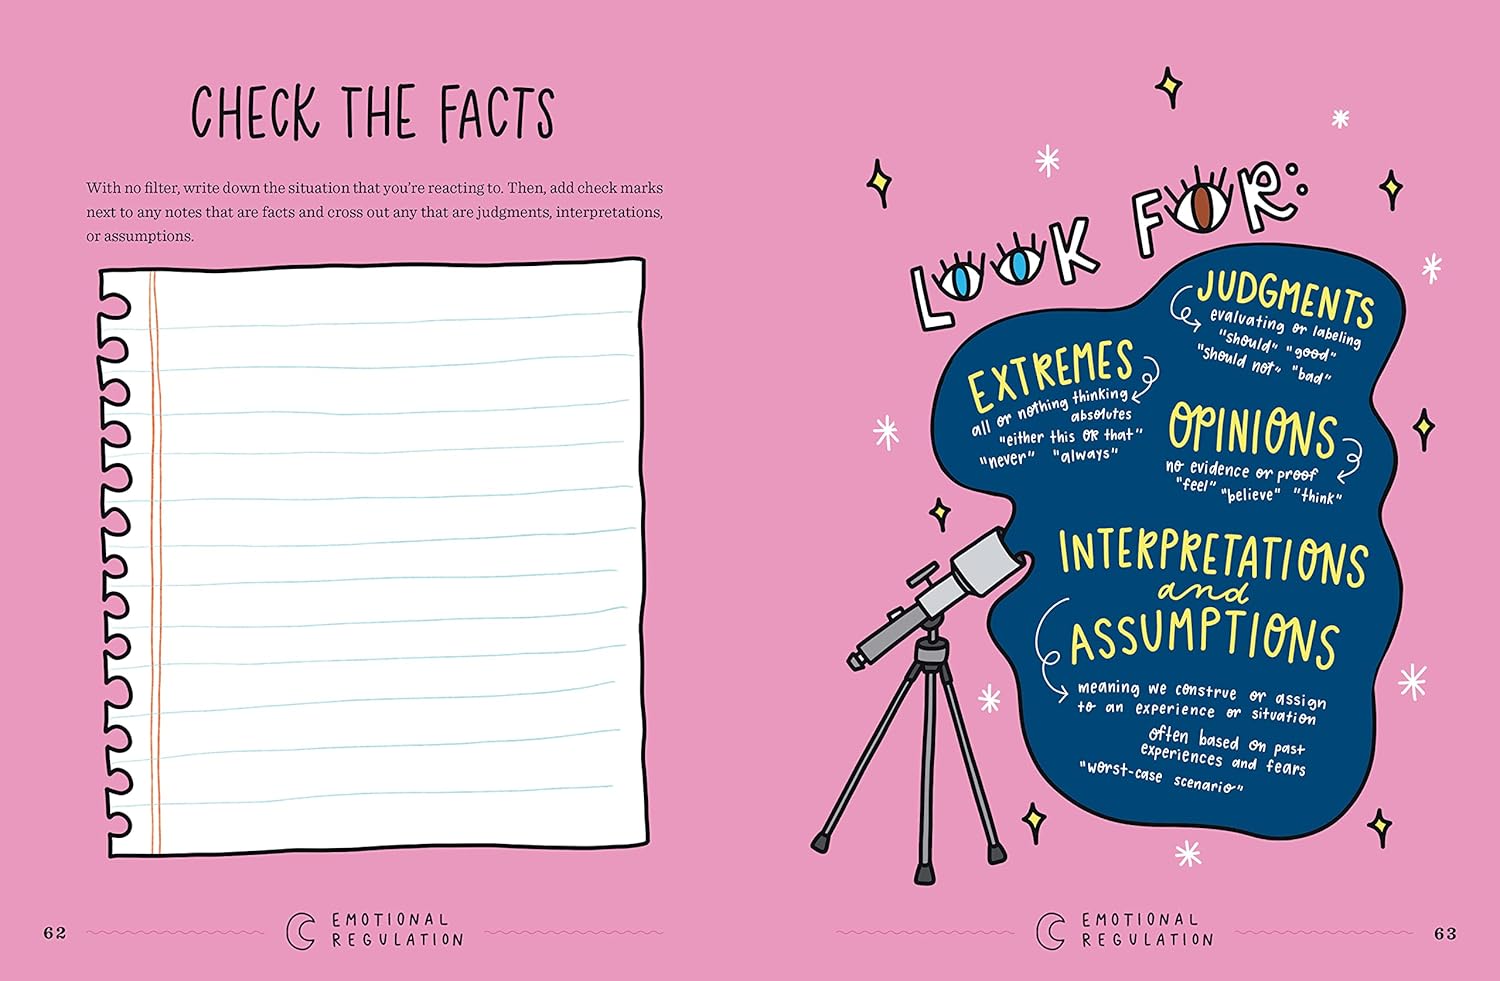 CHECK THE FACTS
With no filter, write down the situation that you're reacting to. Then, add check marks
next to any notes that are facts and cross out any that are judgments, interpretations,
or assumptions.
62
EMOTIONAL
REGULATION
LOOK FOR:
JUDGMENTS
evaluating or labeling
"should" "good"
"should not" "bad"
EXTREMES
all or nothing thinking
absolutes
"either this OR that"
"never" "always"
OPINIONS
no evidence or proof
"feel" "believe" "think"
INTERPRETATIONS
and
ASSUMPTIONS
meaning we construe or assign
to an experience or situation
often based on past
experiences and fears
"worst-case scenario"
EMOTIONAL
REGULATION
63